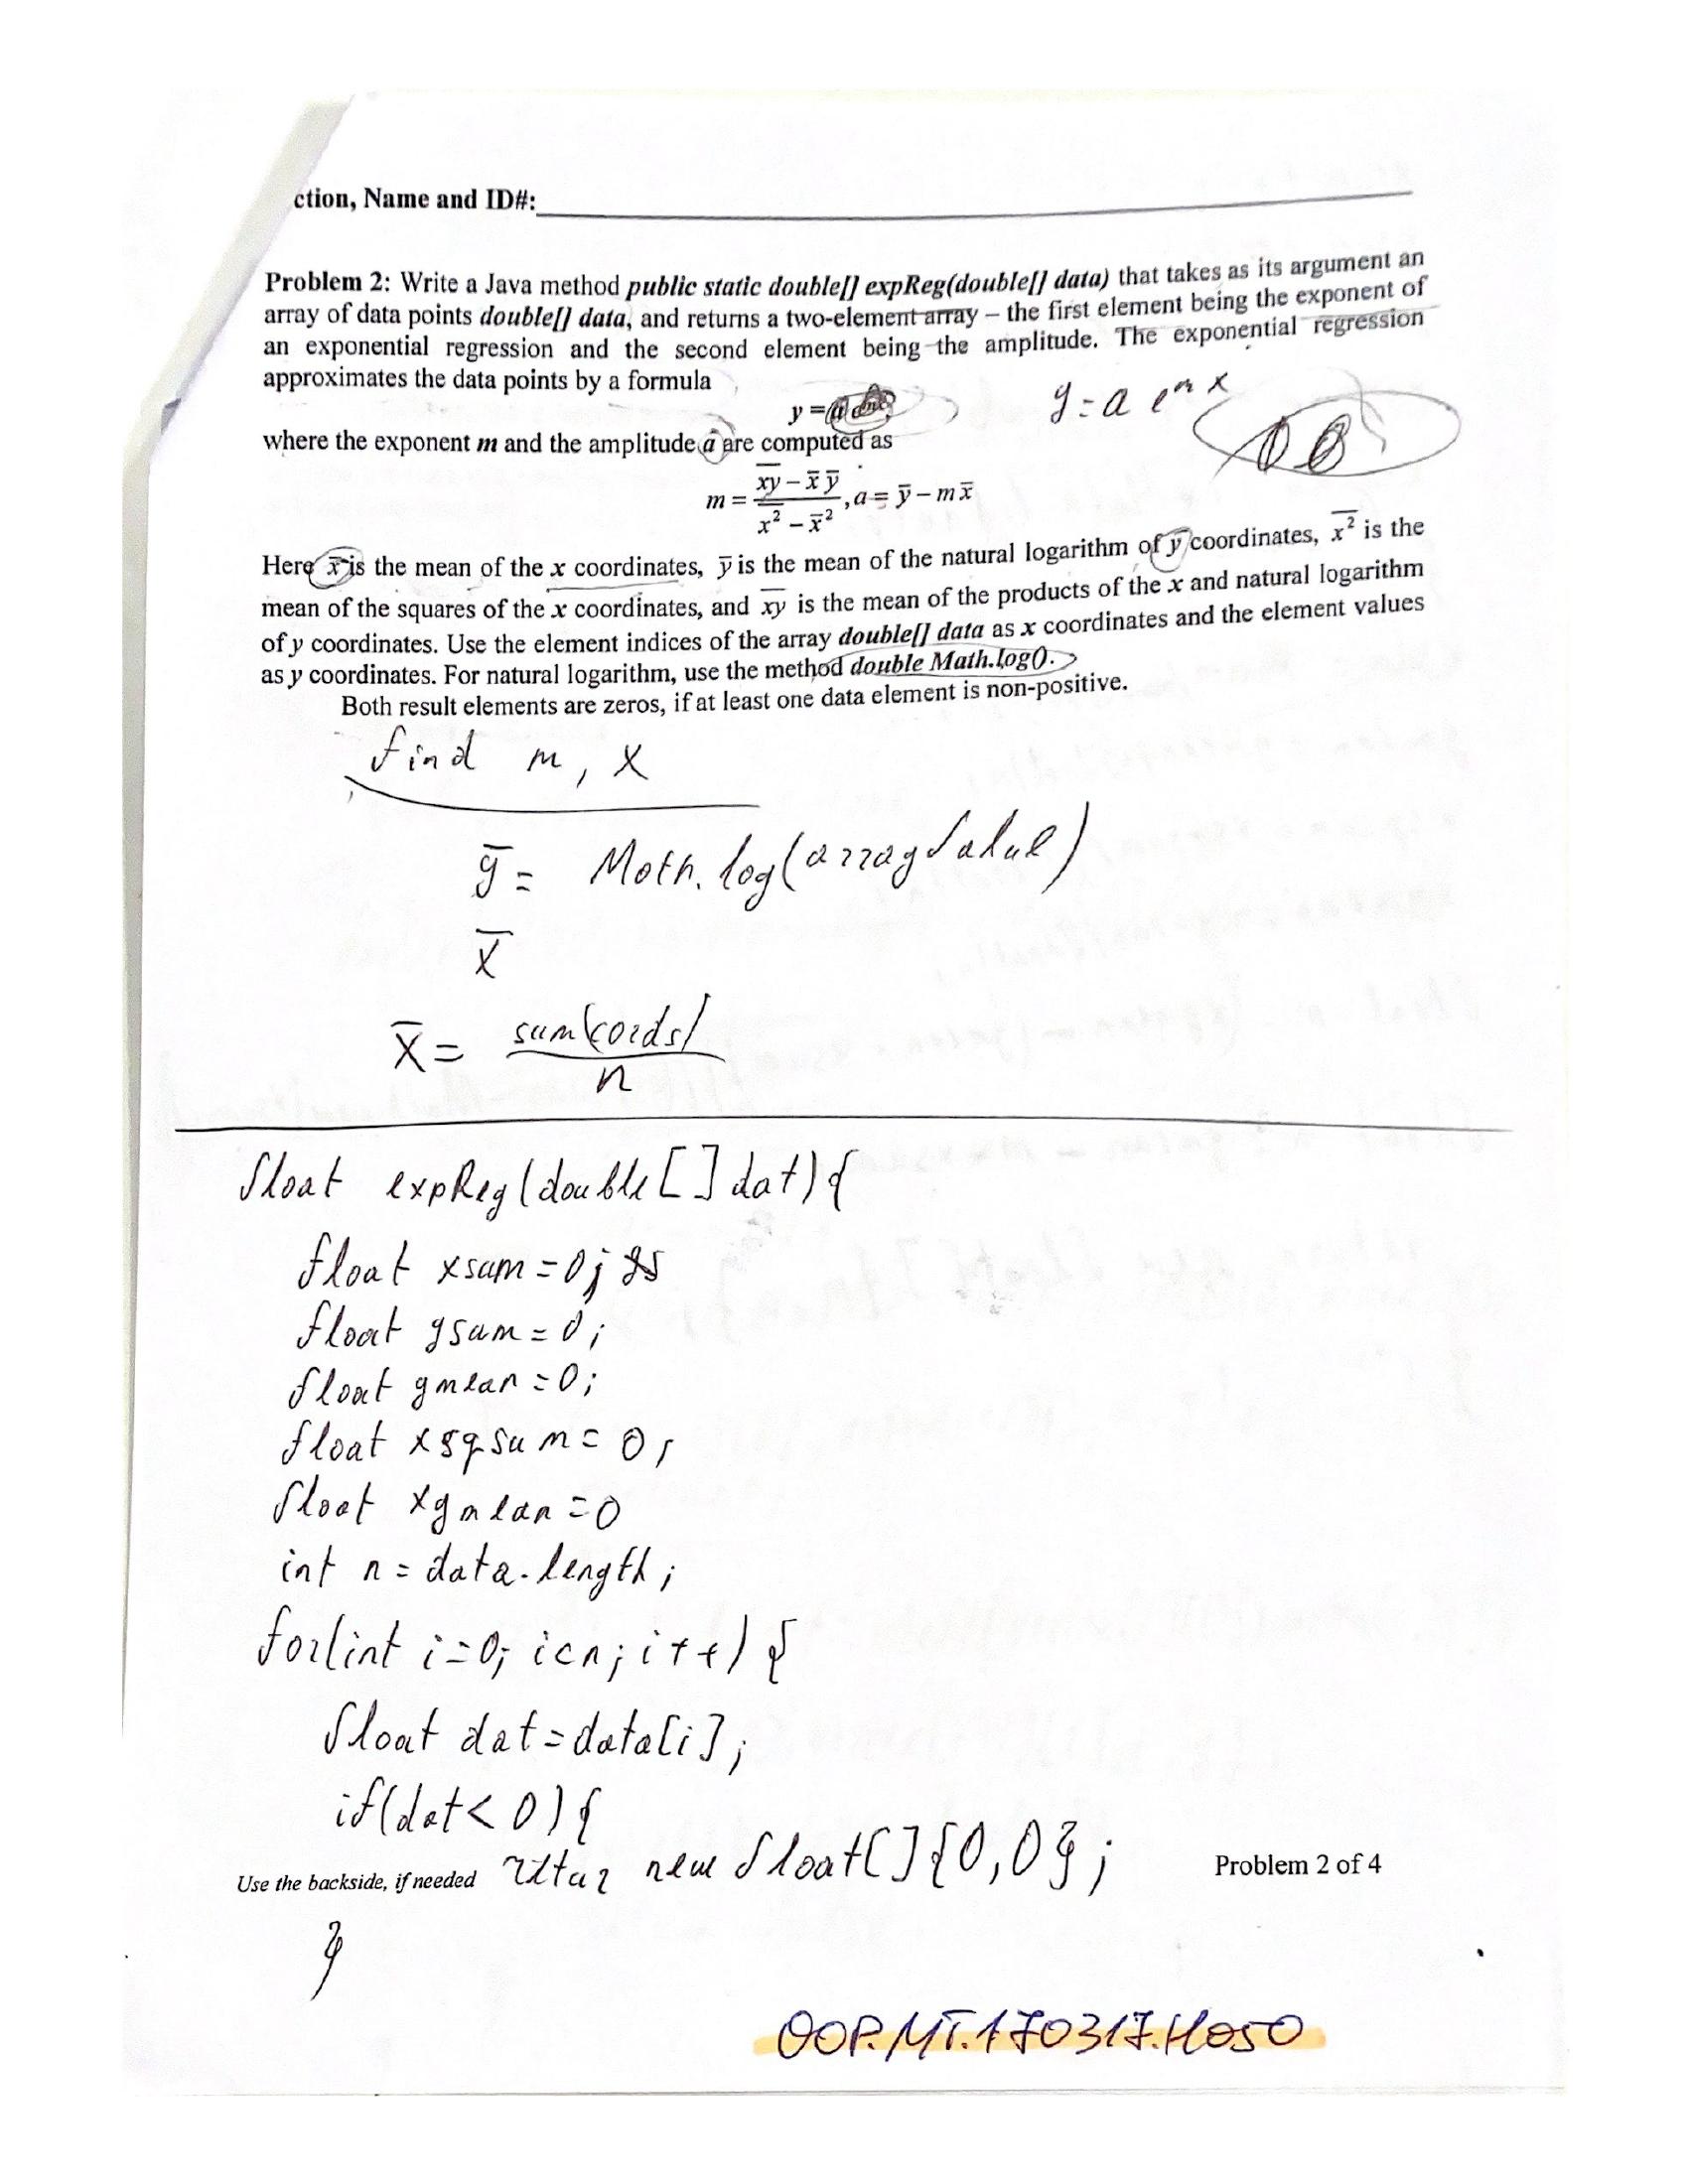 ction, Name and ID#:
Problem 2: Write a Java method public static double[] expReg(double[] data) that takes as its argument an
array of data points double[] data, and returns a two-element array – the first element being the exponent of
an exponential regression and the second element being the amplitude. The exponential regression
approximates the data points by a formula
y =
y = a e^{m x}
where the exponent m and the amplitude a are computed as
m = \frac{\overline{xy} - \bar{x} \bar{y}}{\overline{x^2} - \bar{x}^2}, a = \bar{y} - m\bar{x}
Here x̄ is the mean of the x coordinates, ȳ is the mean of the natural logarithm of y coordinates, \overline{x^2} is the
mean of the squares of the x coordinates, and \overline{xy} is the mean of the products of the x and natural logarithm
of y coordinates. Use the element indices of the array double[] data as x coordinates and the element values
as y coordinates. For natural logarithm, use the method double Math.log().
Both result elements are zeros, if at least one data element is non-positive.
find m, x
ȳ = Math.log(arrayValue)
x̄
x̄ = \frac{sum(cords)}{n}
float expReg(double[] dat){
float xsum = 0;
float ysum = 0;
float ymean = 0;
float xsqsum = 0;
float xymean = 0
int n = data.length;
for(int i=0; i<n; i++) {
float dat = data[i];
if(dat < 0) {
Use the backside, if needed
new float[]{0,0};
Problem 2 of 4
}
OOP.MT.170317.H050